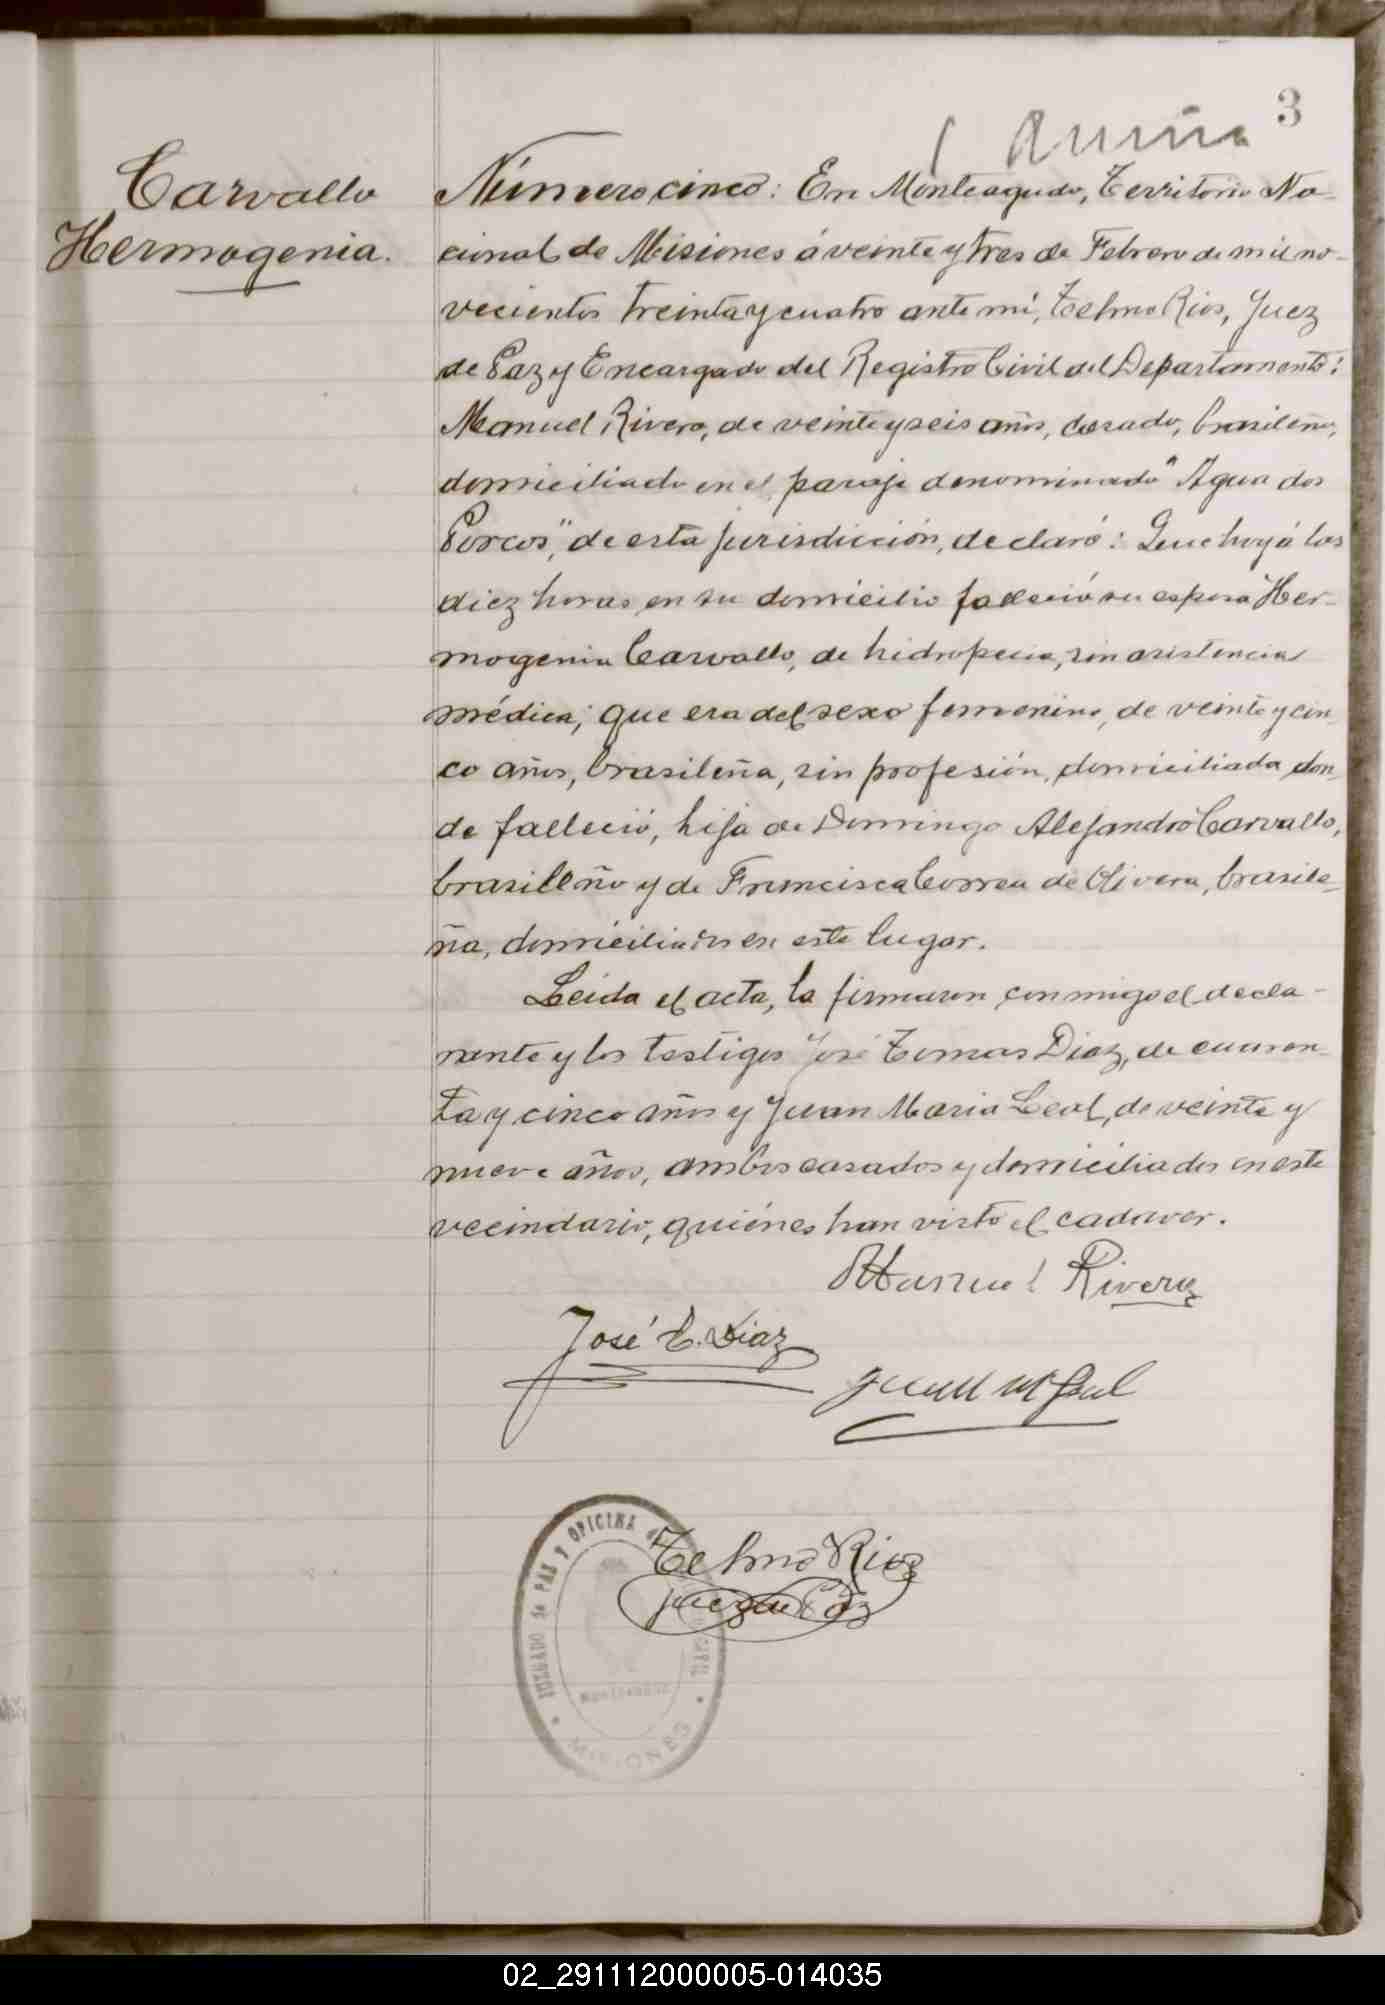 3
Carvallo
Hermogenia.
Número cinco: En Monteagudo, Territorio Na-
cional de Misiones á veinte y tres de Febrero de mil no-
vecientos treinta y cuatro ante mí, Telmo Rios, Juez
de Paz y Encargado del Registro Civil del Departamento:
Manuel Rivero, de veinte y seis años, casado, brasileño,
domiciliado en el paraje denominado "Agua dos
Porcos", de esta jurisdicción, declaró: Que hoy á las
diez horas en su domicilio falleció su esposa Her-
mogenia Carvallo, de hidropecia, sin asistencia
médica; que era del sexo femenino, de veinte y cin
co años, brasileña, sin profesión, domiciliada don
de falleció, hija de Domingo Alejandro Carvallo,
brasileño y de Francisca Correa de Olivera, brasile-
ña, domiciliados en este lugar.
Leida el acta, la firmaron conmigo el decla-
rante y los testigos José Tomas Diaz, de cuaren
ta y cinco años y Juan Maria Leal, de veinte y
nueve años, ambos casados y domiciliados en este
vecindario, quiénes han visto el cadaver.
Manuel Rivera
José T. Diaz
Juan M Leal
Telmo Rios
Juez de Paz
JUZGADO de PAZ Y OFICINA
MONTEAGUDO
MISIONES
02_291112000005-014035